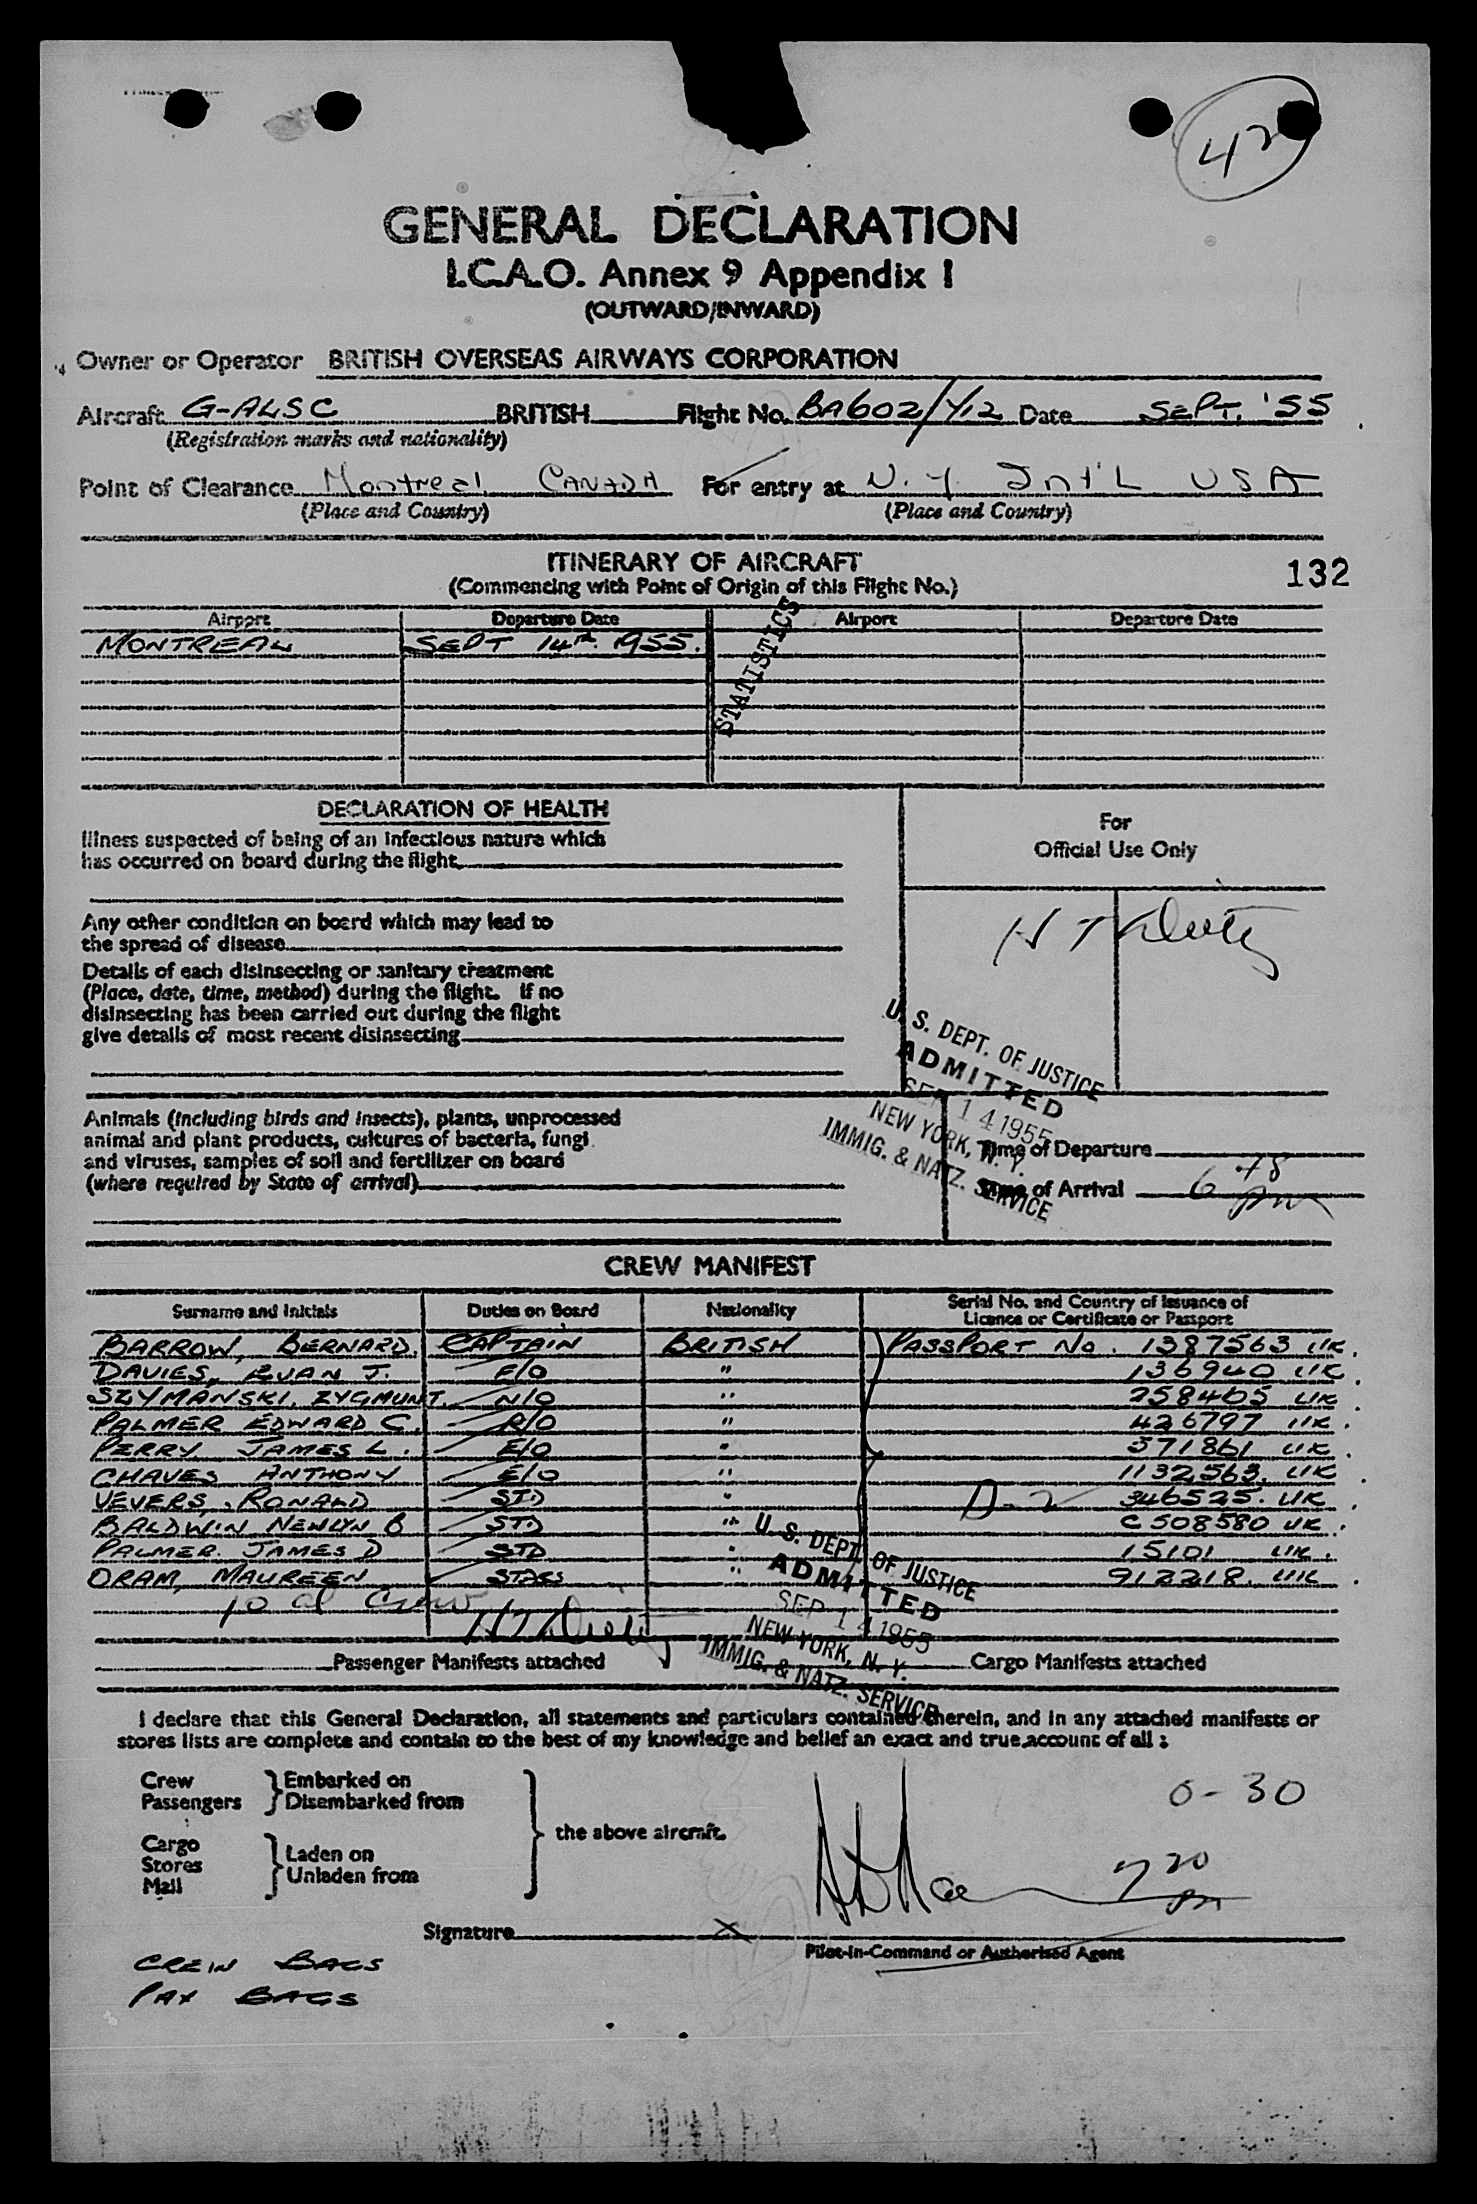 42
GENERAL DECLARATION
I.C.A.O. Annex 9 Appendix 1
(OUTWARD/INWARD)
Owner or Operator BRITISH OVERSEAS AIRWAYS CORPORATION
Aircraft G-ALSC BRITISH Flight No. BA602/412 Date SEPT. '55
(Registration marks and nationality)
Point of Clearance Montreal CANADA For entry at N.Y. Int'L USA
(Place and Country) (Place and Country)
ITINERARY OF AIRCRAFT
(Commencing with Point of Origin of this Flight No.)
132
Airport Departure Date Airport Departure Date
MONTREAL SEPT 14th 1955.
STATISTICS
DECLARATION OF HEALTH
For
Official Use Only
Illness suspected of being of an infectious nature which
has occurred on board during the flight
Any other condition on board which may lead to
the spread of disease
Details of each disinsecting or sanitary treatment
(Place, date, time, method) during the flight. If no
disinsecting has been carried out during the flight
give details of most recent disinsecting
U. S. DEPT. OF JUSTICE
ADMITTED
SEP 14 1955
NEW YORK, N. Y.
IMMIG. & NATZ. SERVICE
Animals (including birds and insects), plants, unprocessed
animal and plant products, cultures of bacteria, fungi
and viruses, samples of soil and fertilizer on board
(where required by State of arrival)
Time of Departure
Time of Arrival 6 48 pm
CREW MANIFEST
Surname and Initials Duties on Board Nationality Serial No. and Country of Issuance of
Licence or Certificate or Passport
BARROW, BERNARD. CAPTAIN BRITISH PASSPORT No. 1387563 UK.
DAVIES, EUAN J. F/O " 136940 UK.
SZYMANSKI, ZYGMUNT. N/O " 258405 UK.
PALMER EDWARD C. R/O " 426797 UK.
PERRY, JAMES L. E/O " 571861 UK.
CHAVES ANTHONY E/O " 1132563. UK.
VEVERS, RONALD STD " D-2 346525. UK.
BALDWIN NEWLYN B STD " C 508580 UK.
PALMER. JAMES D STD " 15101 UK.
ORAM, MAUREEN STDESS " 912218. UK.
10 al Crew
U. S. DEPT. OF JUSTICE
ADMITTED
SEP 14 1955
NEW YORK, N. Y.
IMMIG. & NATZ. SERVICE
Passenger Manifests attached Cargo Manifests attached
I declare that this General Declaration, all statements and particulars contained therein, and in any attached manifests or
stores lists are complete and contain to the best of my knowledge and belief an exact and true account of all :
Crew Embarked on
Passengers Disembarked from
the above aircraft.
Cargo
Stores Laden on
Mail Unladen from
0-30
7 20 pm
Signature X
Pilot-in-Command or Authorised Agent
CREW BAGS
PAX BAGS